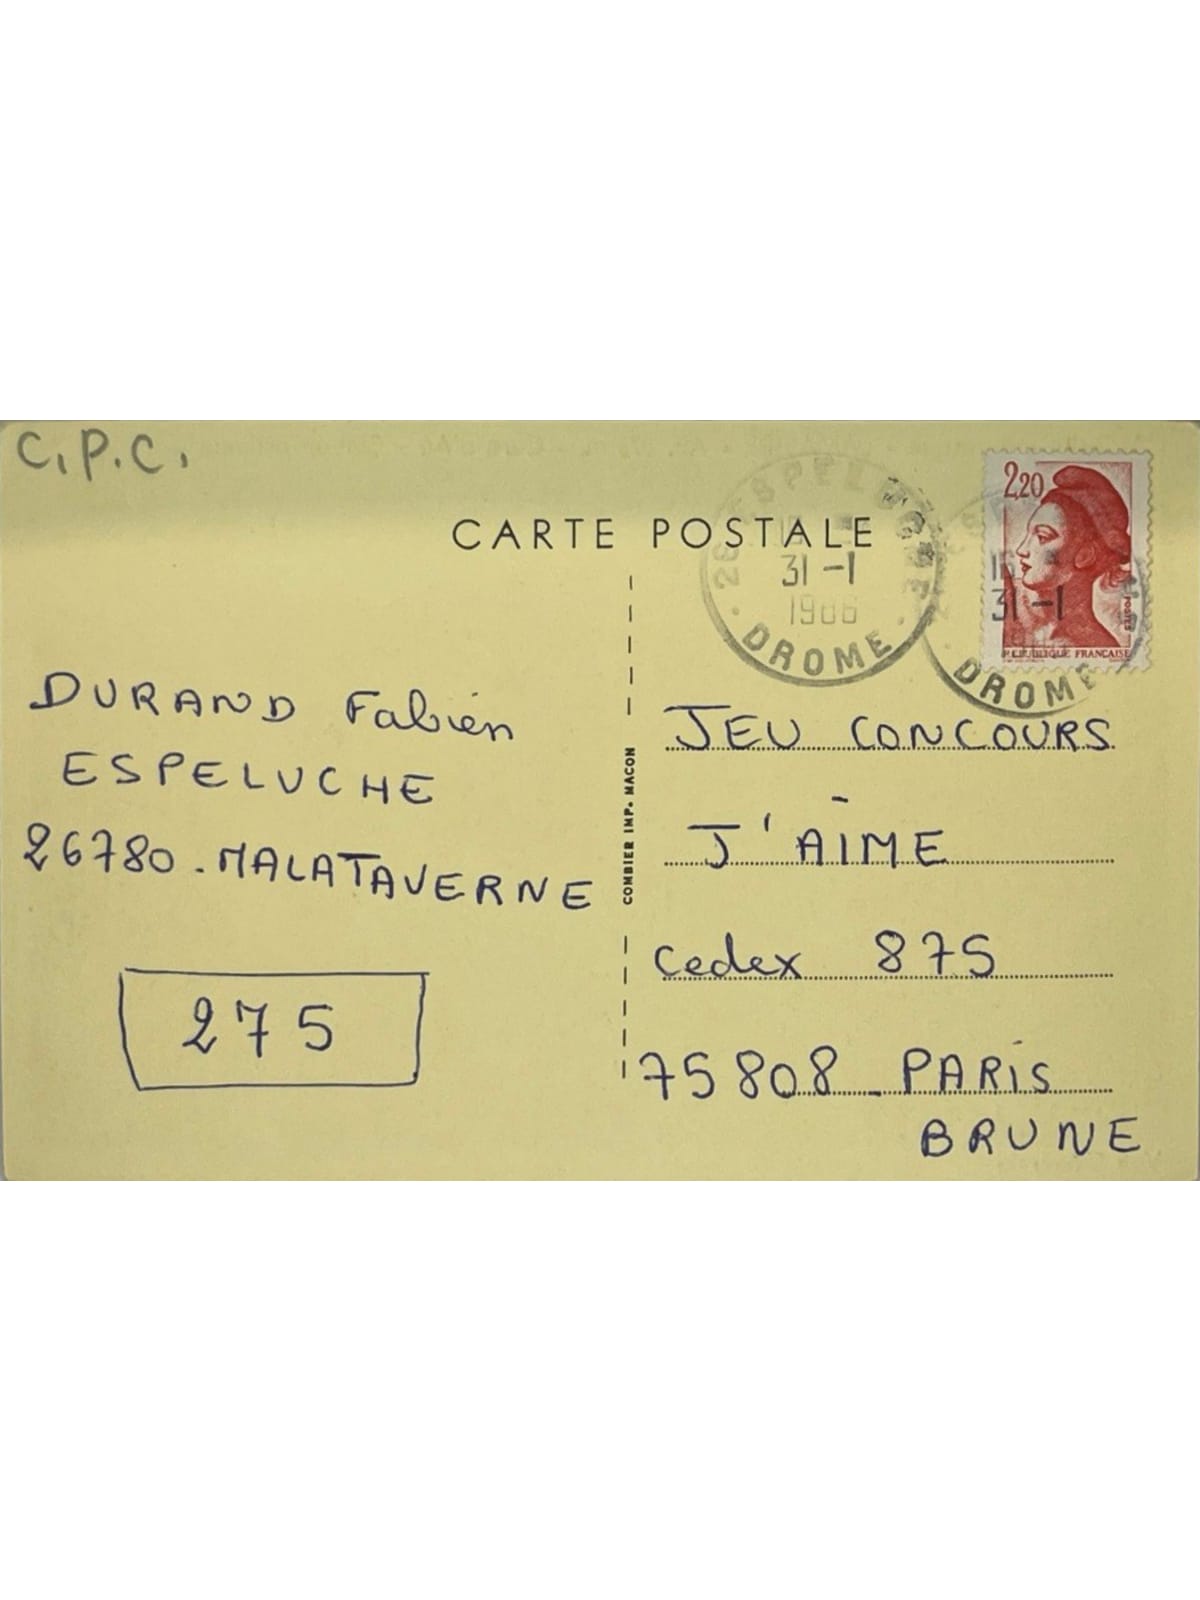 C.P.C.
CARTE POSTALE
2,20
POSTES
REPUBLIQUE FRANÇAISE
26 ESPELUCHE
31-1
DROME
16
31-1
DROME
DURAND Fabien
ESPELUCHE
26780. MALATAVERNE
275
COMBIER IMP. MACON
JEU CONCOURS
J'AIME
Cedex 875
75808_PARIS
BRUNE